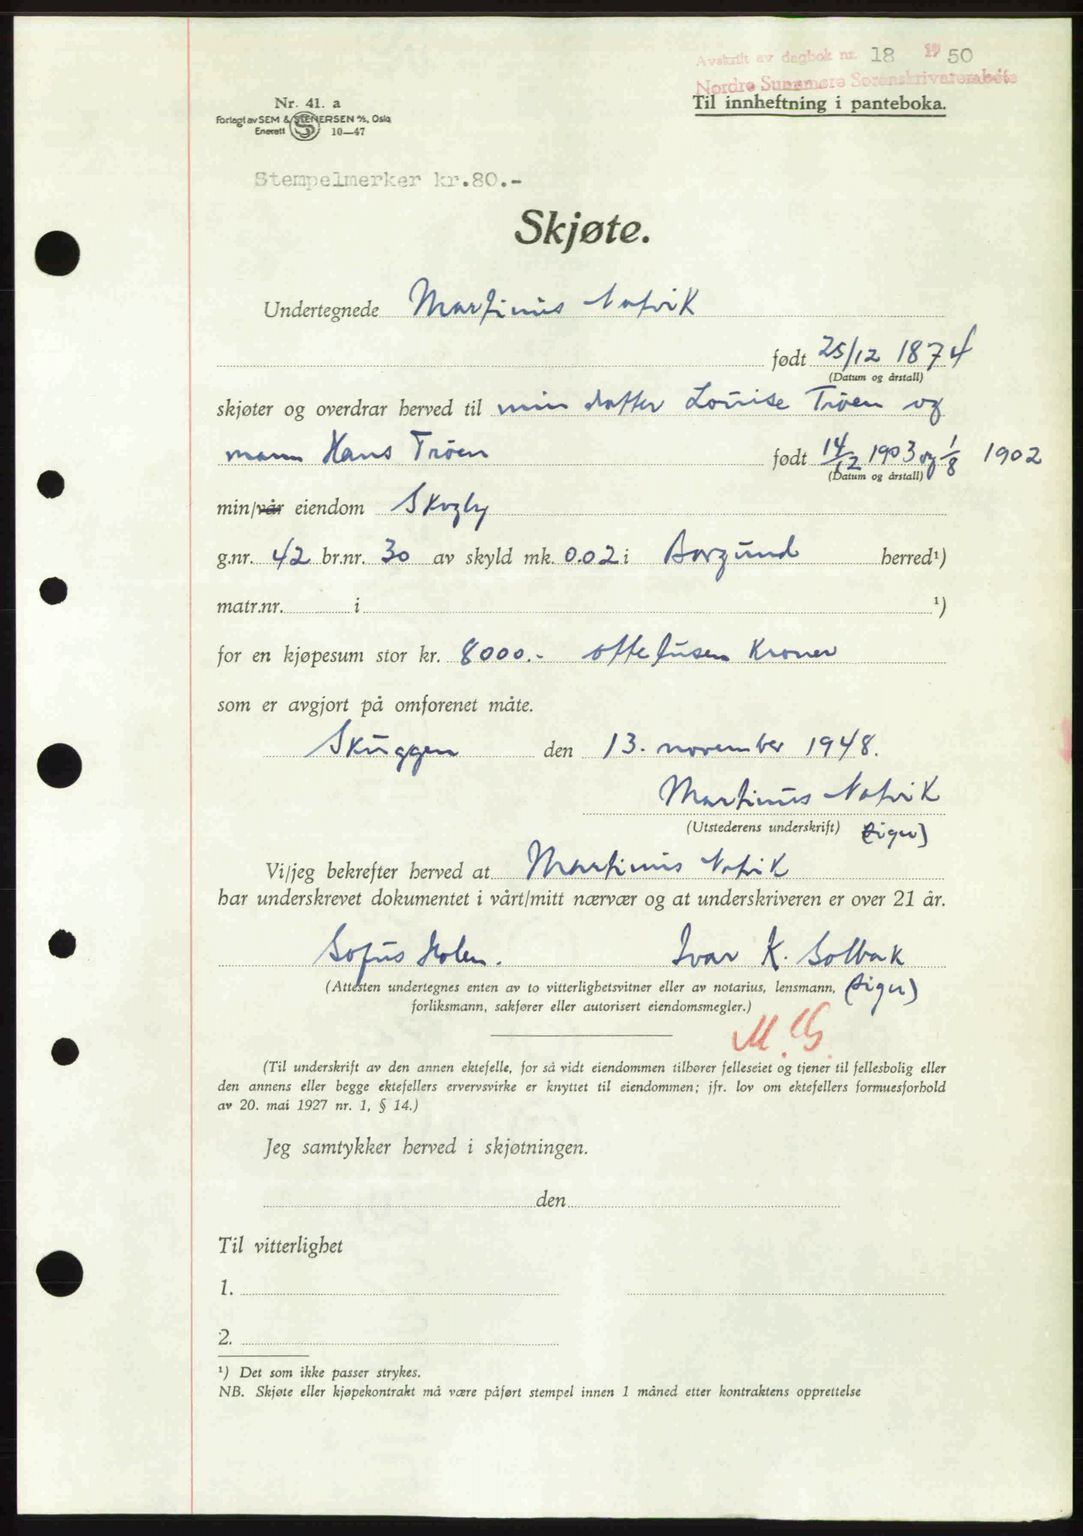 Avskrift av dagbok nr. 18 1950
Nordre Sunnmøre Sorenskriverembete
Nr. 41. a
Til innheftning i panteboka.
Forlagt av SEM & STENERSEN A/S, Oslo
Enerett 10—47
Stempelmerker kr.80.-
Skjøte.
Undertegnede Martinus Natvik
født 25/12 1874
(Datum og årstall)
skjøter og overdrar herved til min datter Louise Trøen og
mann Hans Trøen født 14/12 1903 og 1/8 1902
(Datum og årstall)
min/vår eiendom Skogly
g.nr. 42 br.nr. 30 av skyld mk. 0.02 i Borgund herred¹)
matr.nr. i ¹)
for en kjøpesum stor kr. 8000.- ottetusen Kroner
som er avgjort på omforenet måte.
Skuggen den 13. november 1948.
Martinus Natvik
(Utstederens underskrift) (sign)
Vi/jeg bekrefter herved at Martinus Natvik
har underskrevet dokumentet i vårt/mitt nærvær og at underskriveren er over 21 år.
Sofus Holen. Ivar K. Solbak
(Attesten undertegnes enten av to vitterlighetsvitner eller av notarius, lensmann, (sign)
forliksmann, sakfører eller autorisert eiendomsmegler.)
(Til underskrift av den annen ektefelle, for så vidt eiendommen tilhører felleseiet og tjener til fellesbolig eller
den annens eller begge ektefellers ervervsvirke er knyttet til eiendommen; jfr. lov om ektefellers formuesforhold
av 20. mai 1927 nr. 1, § 14.)
Jeg samtykker herved i skjøtningen.
den
Til vitterlighet
1.
2.
¹) Det som ikke passer strykes.
NB. Skjøte eller kjøpekontrakt må være påført stempel innen 1 måned etter kontraktens opprettelse